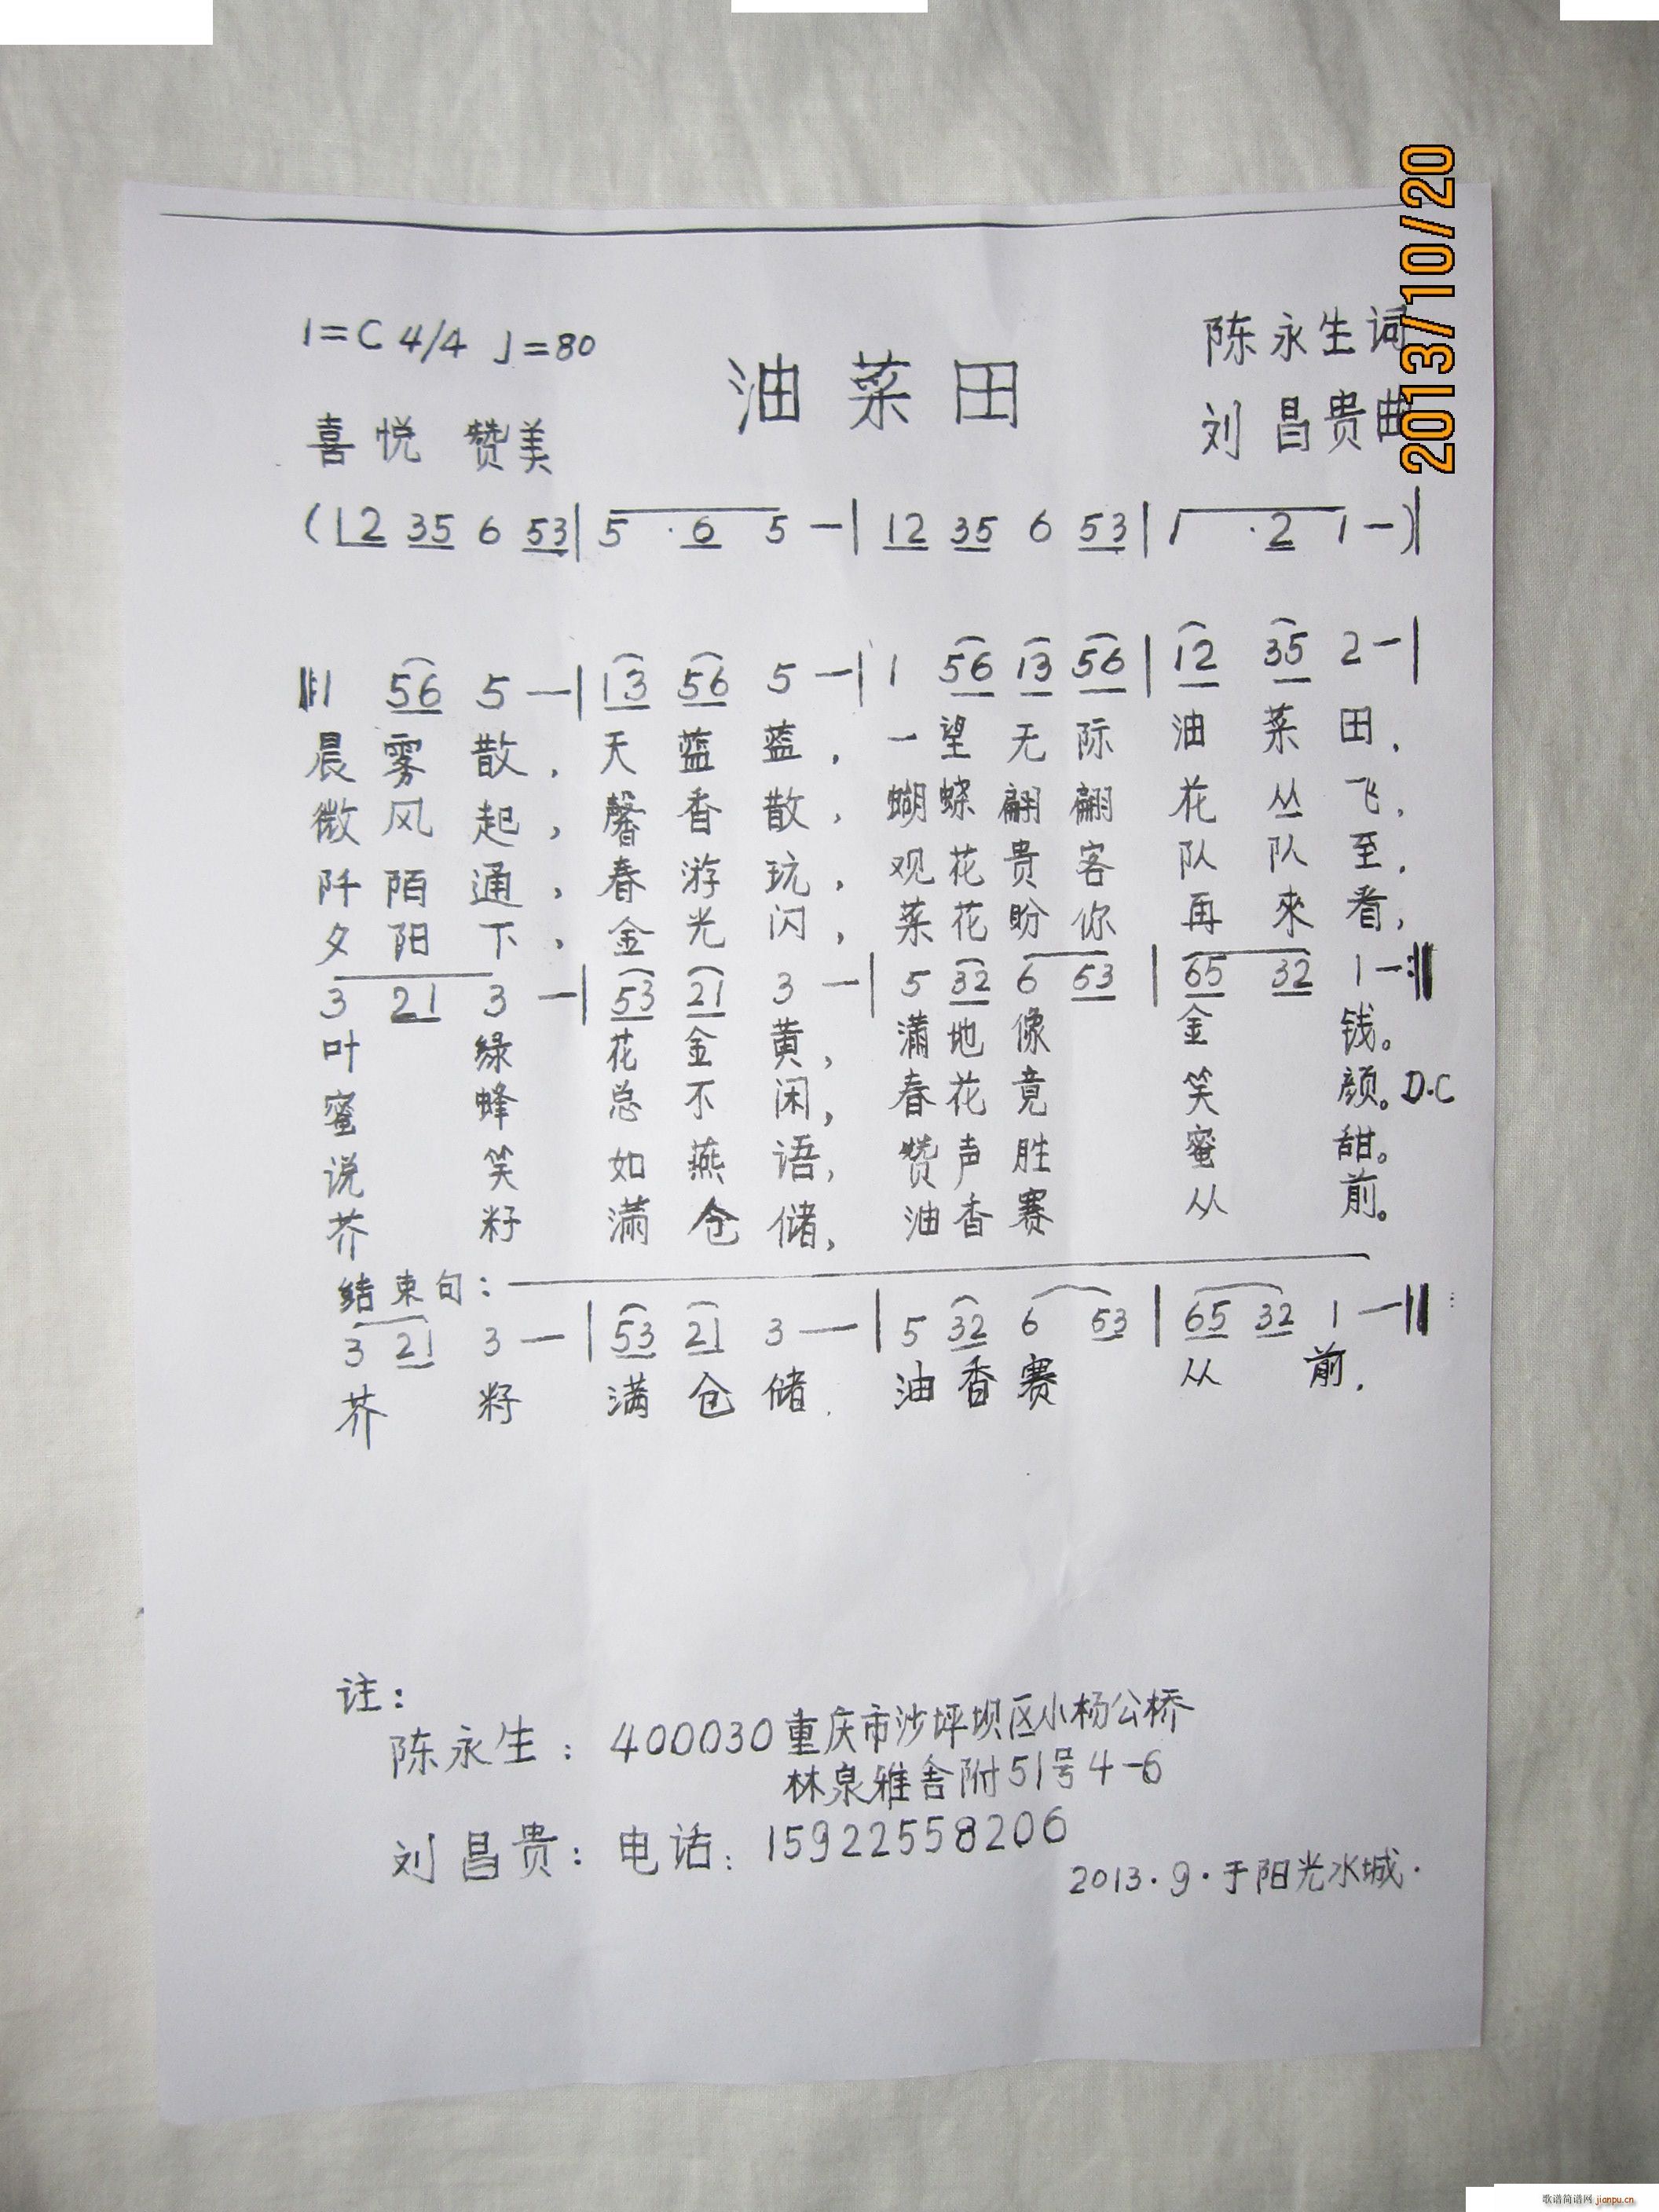 2013/10/20
1=C 4/4 ♩=80
油菜田
陈永生词
喜悦 赞美
刘昌贵曲
(12 35 6 53| 5 · 6 5 —| 12 35 6 53| 1 · 2 1 —)|
‖:1 56 5 —| 13 56 5 —| 1 56 13 56| 12 35 2 —|
晨雾散, 天蓝蓝, 一望无际油菜田,
微风起, 馨香散, 蝴蝶翩翩花丛飞,
阡陌通, 春游玩, 观花贵客队队至,
夕阳下, 金光闪, 菜花盼你再來看,
3 21 3 —| 53 21 3 —| 5 32 6 53| 65 32 1 —:‖
叶绿花金黄, 满地像金钱。
蜜蜂总不闲, 春花竟笑颜。D.C
说笑如燕语, 赞声胜蜜甜。
芥籽满仓储, 油香赛从前。
结束句:
3 21 3 —| 53 21 3 —| 5 32 6 53| 65 32 1 —‖
芥籽满仓储. 油香赛从前.
注:
陈永生: 400030重庆市沙坪坝区小杨公桥
林泉雅舍附51号4-6
刘昌贵: 电话: 15922558206
2013.9.于阳光水城.
歌谱简谱网 jianpu.cn